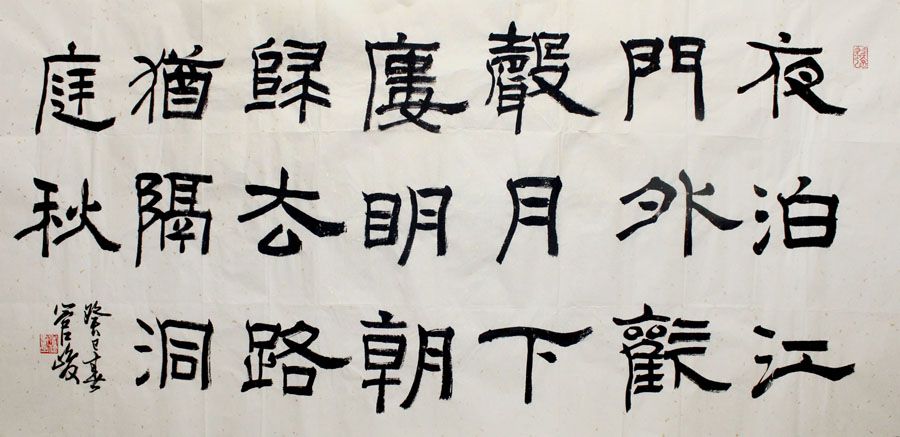 夜泊江
門外歡
聲月下
廔明朝
歸去路
猶隔洞
庭秋
癸巳春
管峻